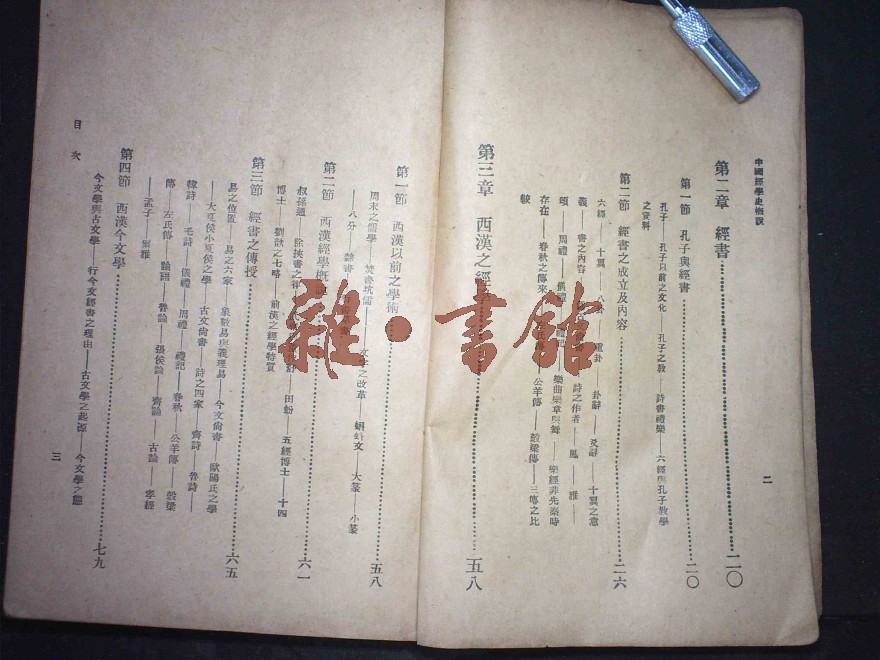 中國經學史概說
二
第二章 經書 二〇
第一節 孔子與經書 二〇
孔子——孔子以前之文化——孔子之教——詩書禮樂——六經與孔子教學
之資料
第二節 經書之成立及內容 二六
六經——十翼——八卦——重卦——卦辭——爻辭——十翼之意
義——書之內容 詩之作者——風——雅——
頌——周禮——儀禮 記——樂曲樂章與舞——樂經非先秦時
存在——春秋之傳來 氏傳——公羊傳——穀梁傳——三傳之比
較
第三章 西漢之經學 五八
第一節 西漢以前之學術 五八
周末之儒學——焚書坑儒 文字之改革——蝌蚪文——大篆——小篆
——八分——隸書
第二節 西漢經學概 六一
叔孫通——除挾書之律 田蚡——五經博士——十四
博士——劉歆之七略——前漢之經學特質
第三節 經書之傳授 六五
易之位置——易之六家——象數易與義理易——今文尙書——歐陽氏之學
——大夏侯小夏侯之學——古文尙書——詩之四家——齊詩——魯詩——
韓詩——毛詩——儀禮——周禮——禮記——春秋——公羊傳——穀梁
傳——左氏傳——論語——魯論——張侯論——齊論——古論——孝經
——孟子——爾雅
第四節 西漢今文學 七九
今文學與古文學——行今文經書之理由——古文學之起源——今文學之態
目次
三
雜·書館